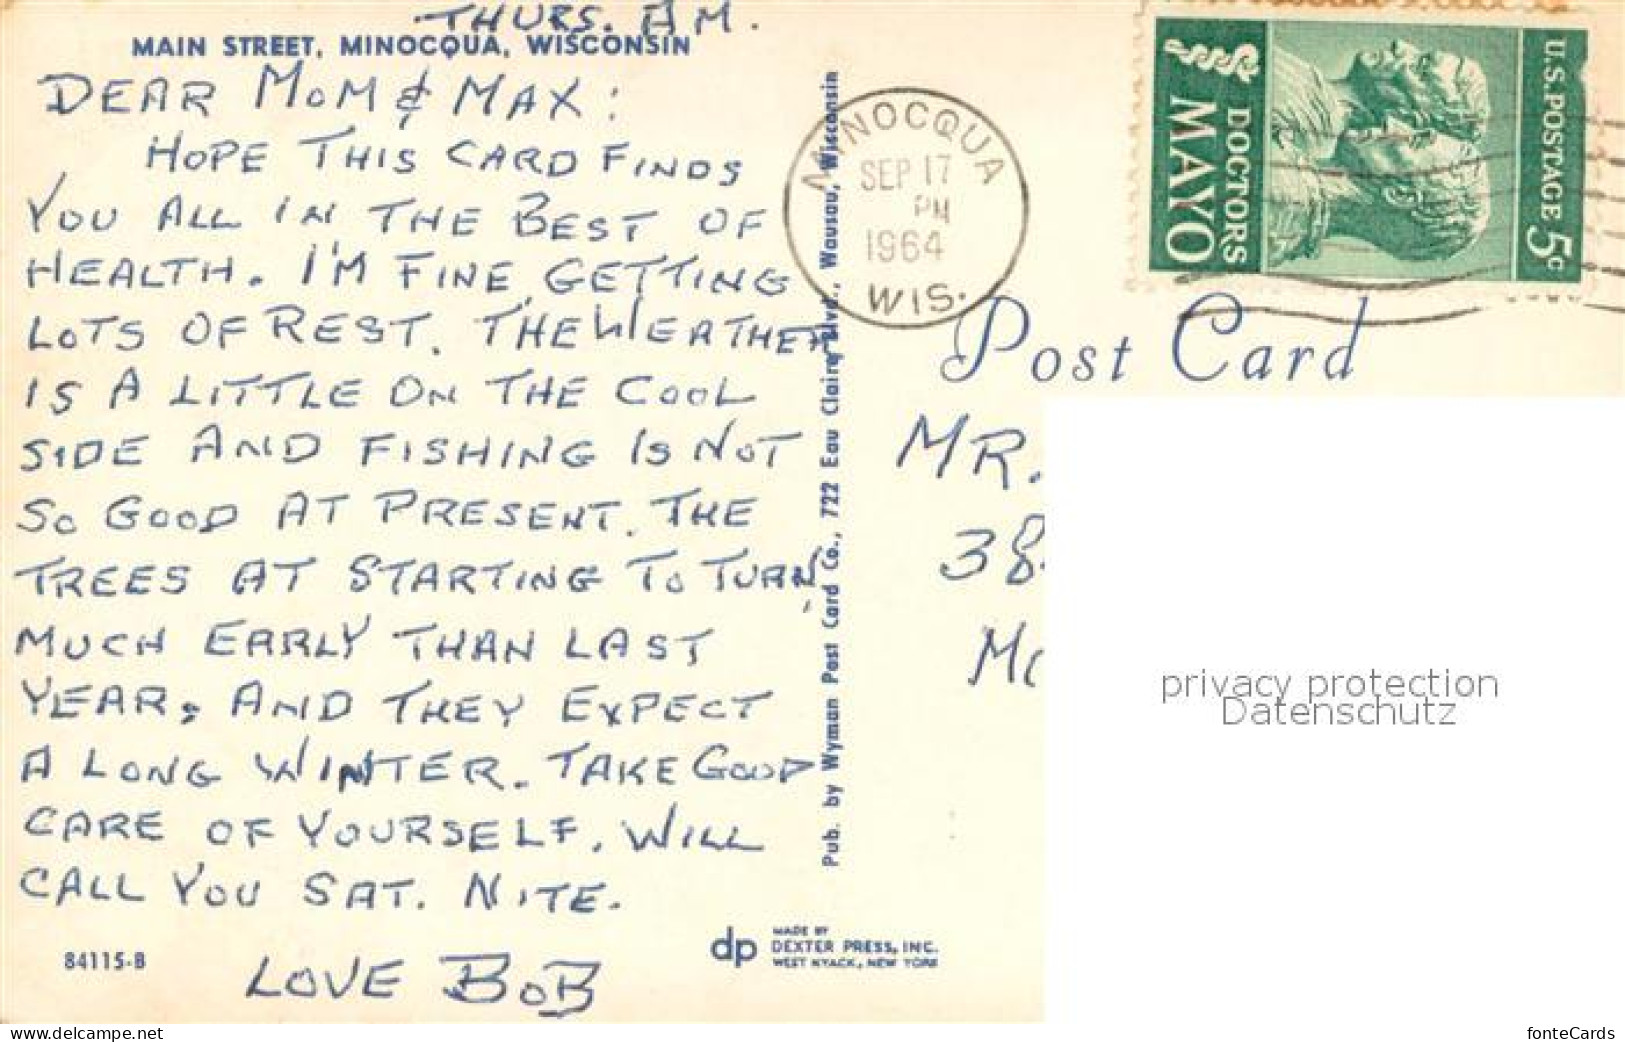 THURS. A.M.
MAIN STREET, MINOCQUA, WISCONSIN
DEAR MOM & MAX:
HOPE THIS CARD FINDS
YOU ALL IN THE BEST OF
HEALTH. I'M FINE GETTING
LOTS OF REST. THE WEATHER
IS A LITTLE ON THE COOL
SIDE AND FISHING IS NOT
SO GOOD AT PRESENT. THE
TREES AT STARTING TO TURN,
MUCH EARLY THAN LAST
YEAR, AND THEY EXPECT
A LONG WINTER. TAKE GOOD
CARE OF YOURSELF. WILL
CALL YOU SAT. NITE.
LOVE BOB
84115-B
dp
MADE BY
DEXTER PRESS, INC.
WEST NYACK, NEW YORK
Pub. by Wyman Post Card Co., 722 Eau Claire Blvd., Wausau, Wisconsin
MINOCQUA
SEP 17
PM
1964
WIS.
DOCTORS
MAYO
U.S. POSTAGE 5c
Post Card
MR.
38
privacy protection
Datenschutz
www.delcampe.net
fonteCards